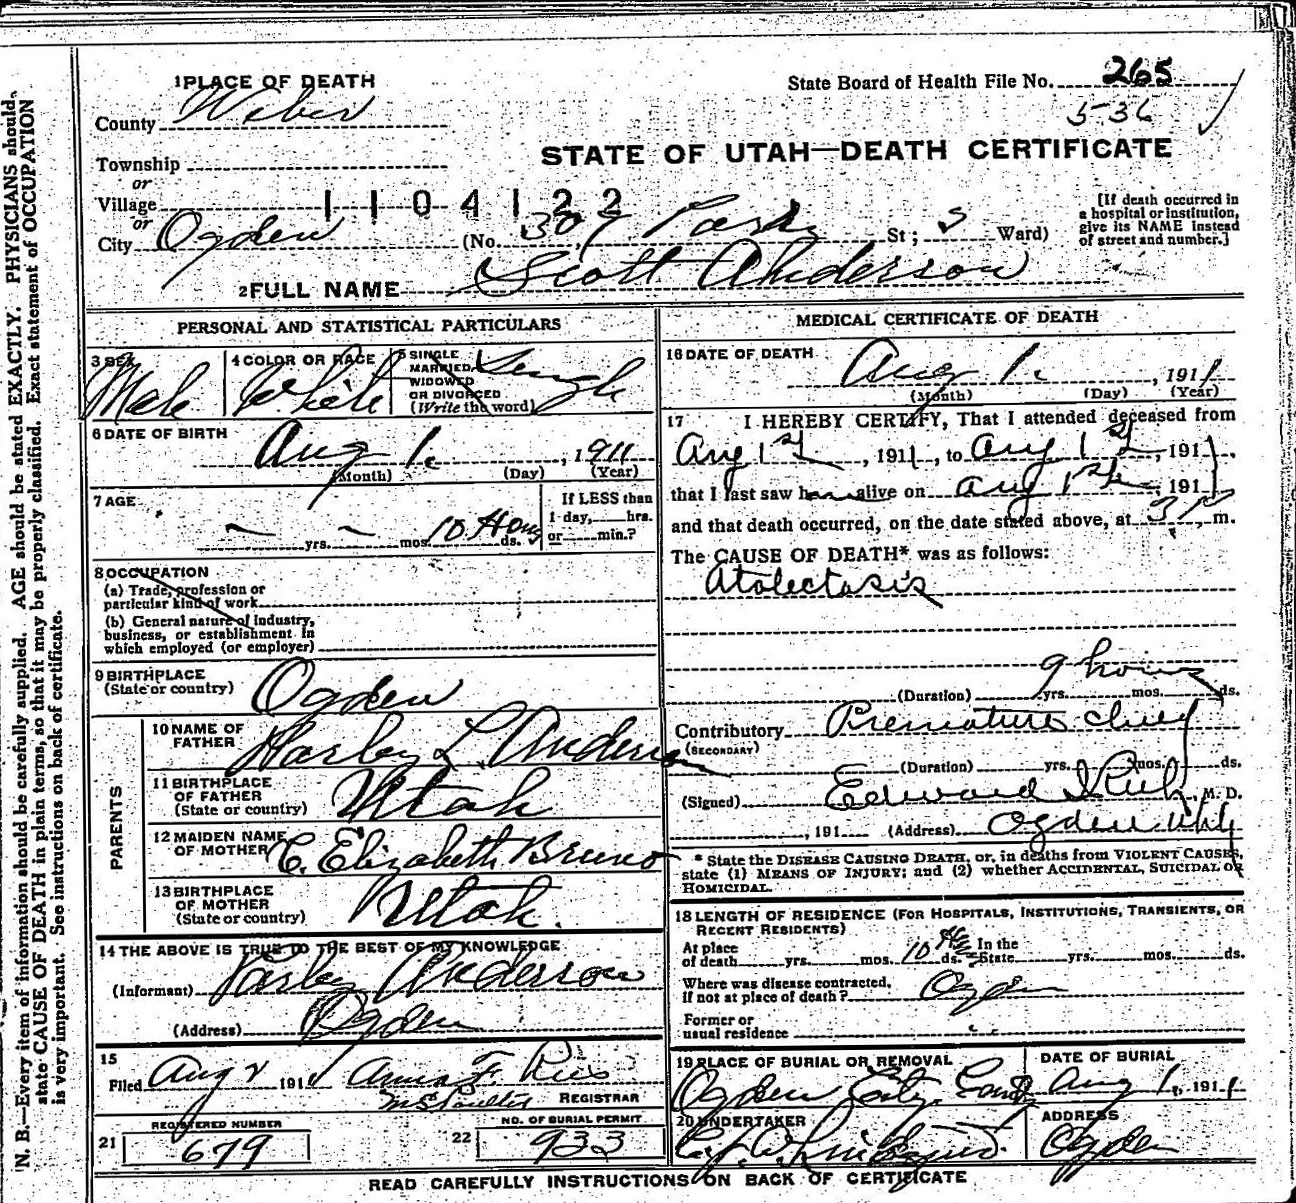 N. B.—Every item of information should be carefully supplied. AGE should be stated EXACTLY. PHYSICIANS should
state CAUSE OF DEATH in plain terms, so that it may be properly classified. Exact statement of OCCUPATION
is very important. See instructions on back of certificate.
1 PLACE OF DEATH
State Board of Health File No. 265
County Weber
536
STATE OF UTAH—DEATH CERTIFICATE
Township
or
Village
1104122
or
City Ogden (No. 307 Park St; 5 Ward)
[If death occurred in
a hospital or institution,
give its NAME instead
of street and number.]
2 FULL NAME Scott Anderson
PERSONAL AND STATISTICAL PARTICULARS
3 SEX Male
4 COLOR OR RACE White
5 SINGLE
MARRIED,
WIDOWED
OR DIVORCED
(Write the word) Single
6 DATE OF BIRTH
Aug 1. , 1911
(Month) (Day) (Year)
7 AGE
— yrs. — mos. 10 Hours ds.
If LESS than
1 day, hrs.
or min.?
8 OCCUPATION
(a) Trade, profession or
particular kind of work
(b) General nature of industry,
business, or establishment in
which employed (or employer)
9 BIRTHPLACE
(State or country) Ogden
PARENTS
10 NAME OF
FATHER Parley L. Anderson
11 BIRTHPLACE
OF FATHER
(State or country) Utah
12 MAIDEN NAME
OF MOTHER C. Elizabeth Bruno
13 BIRTHPLACE
OF MOTHER
(State or country) Utah.
14 THE ABOVE IS TRUE TO THE BEST OF MY KNOWLEDGE
(Informant) Parley Anderson
(Address) Ogden
15
Filed Aug 2 1911 Anna F. Ries
REGISTRAR
REGISTERED NUMBER
21 679
NO. OF BURIAL PERMIT
22 933
MEDICAL CERTIFICATE OF DEATH
16 DATE OF DEATH
Aug 1. , 1911
(Month) (Day) (Year)
17 I HEREBY CERTIFY, That I attended deceased from
Aug 1st , 1911, to Aug 1st, 1911,
that I last saw h alive on Aug 1st, 1911
and that death occurred, on the date stated above, at 3 P. m.
The CAUSE OF DEATH* was as follows:
Atolectasis
9 hours
(Duration) yrs. mos. ds.
Contributory Premature
(SECONDARY)
(Duration) yrs. mos. ds.
(Signed) Edward I Rich M. D.
, 191 (Address) Ogden Utah
* State the DISEASE CAUSING DEATH, or, in deaths from VIOLENT CAUSES,
state (1) MEANS OF INJURY; and (2) whether ACCIDENTAL, SUICIDAL OR
HOMICIDAL.
18 LENGTH OF RESIDENCE (FOR HOSPITALS, INSTITUTIONS, TRANSIENTS, OR
RECENT RESIDENTS)
At place
of death yrs. mos. 10 Hrs ds. In the
State yrs. mos. ds.
Where was disease contracted,
if not at place of death? Ogden
Former or
usual residence
19 PLACE OF BURIAL OR REMOVAL
Ogden City
DATE OF BURIAL
Aug 1, 1911
20 UNDERTAKER
ADDRESS
Ogden
READ CAREFULLY INSTRUCTIONS ON BACK OF CERTIFICATE